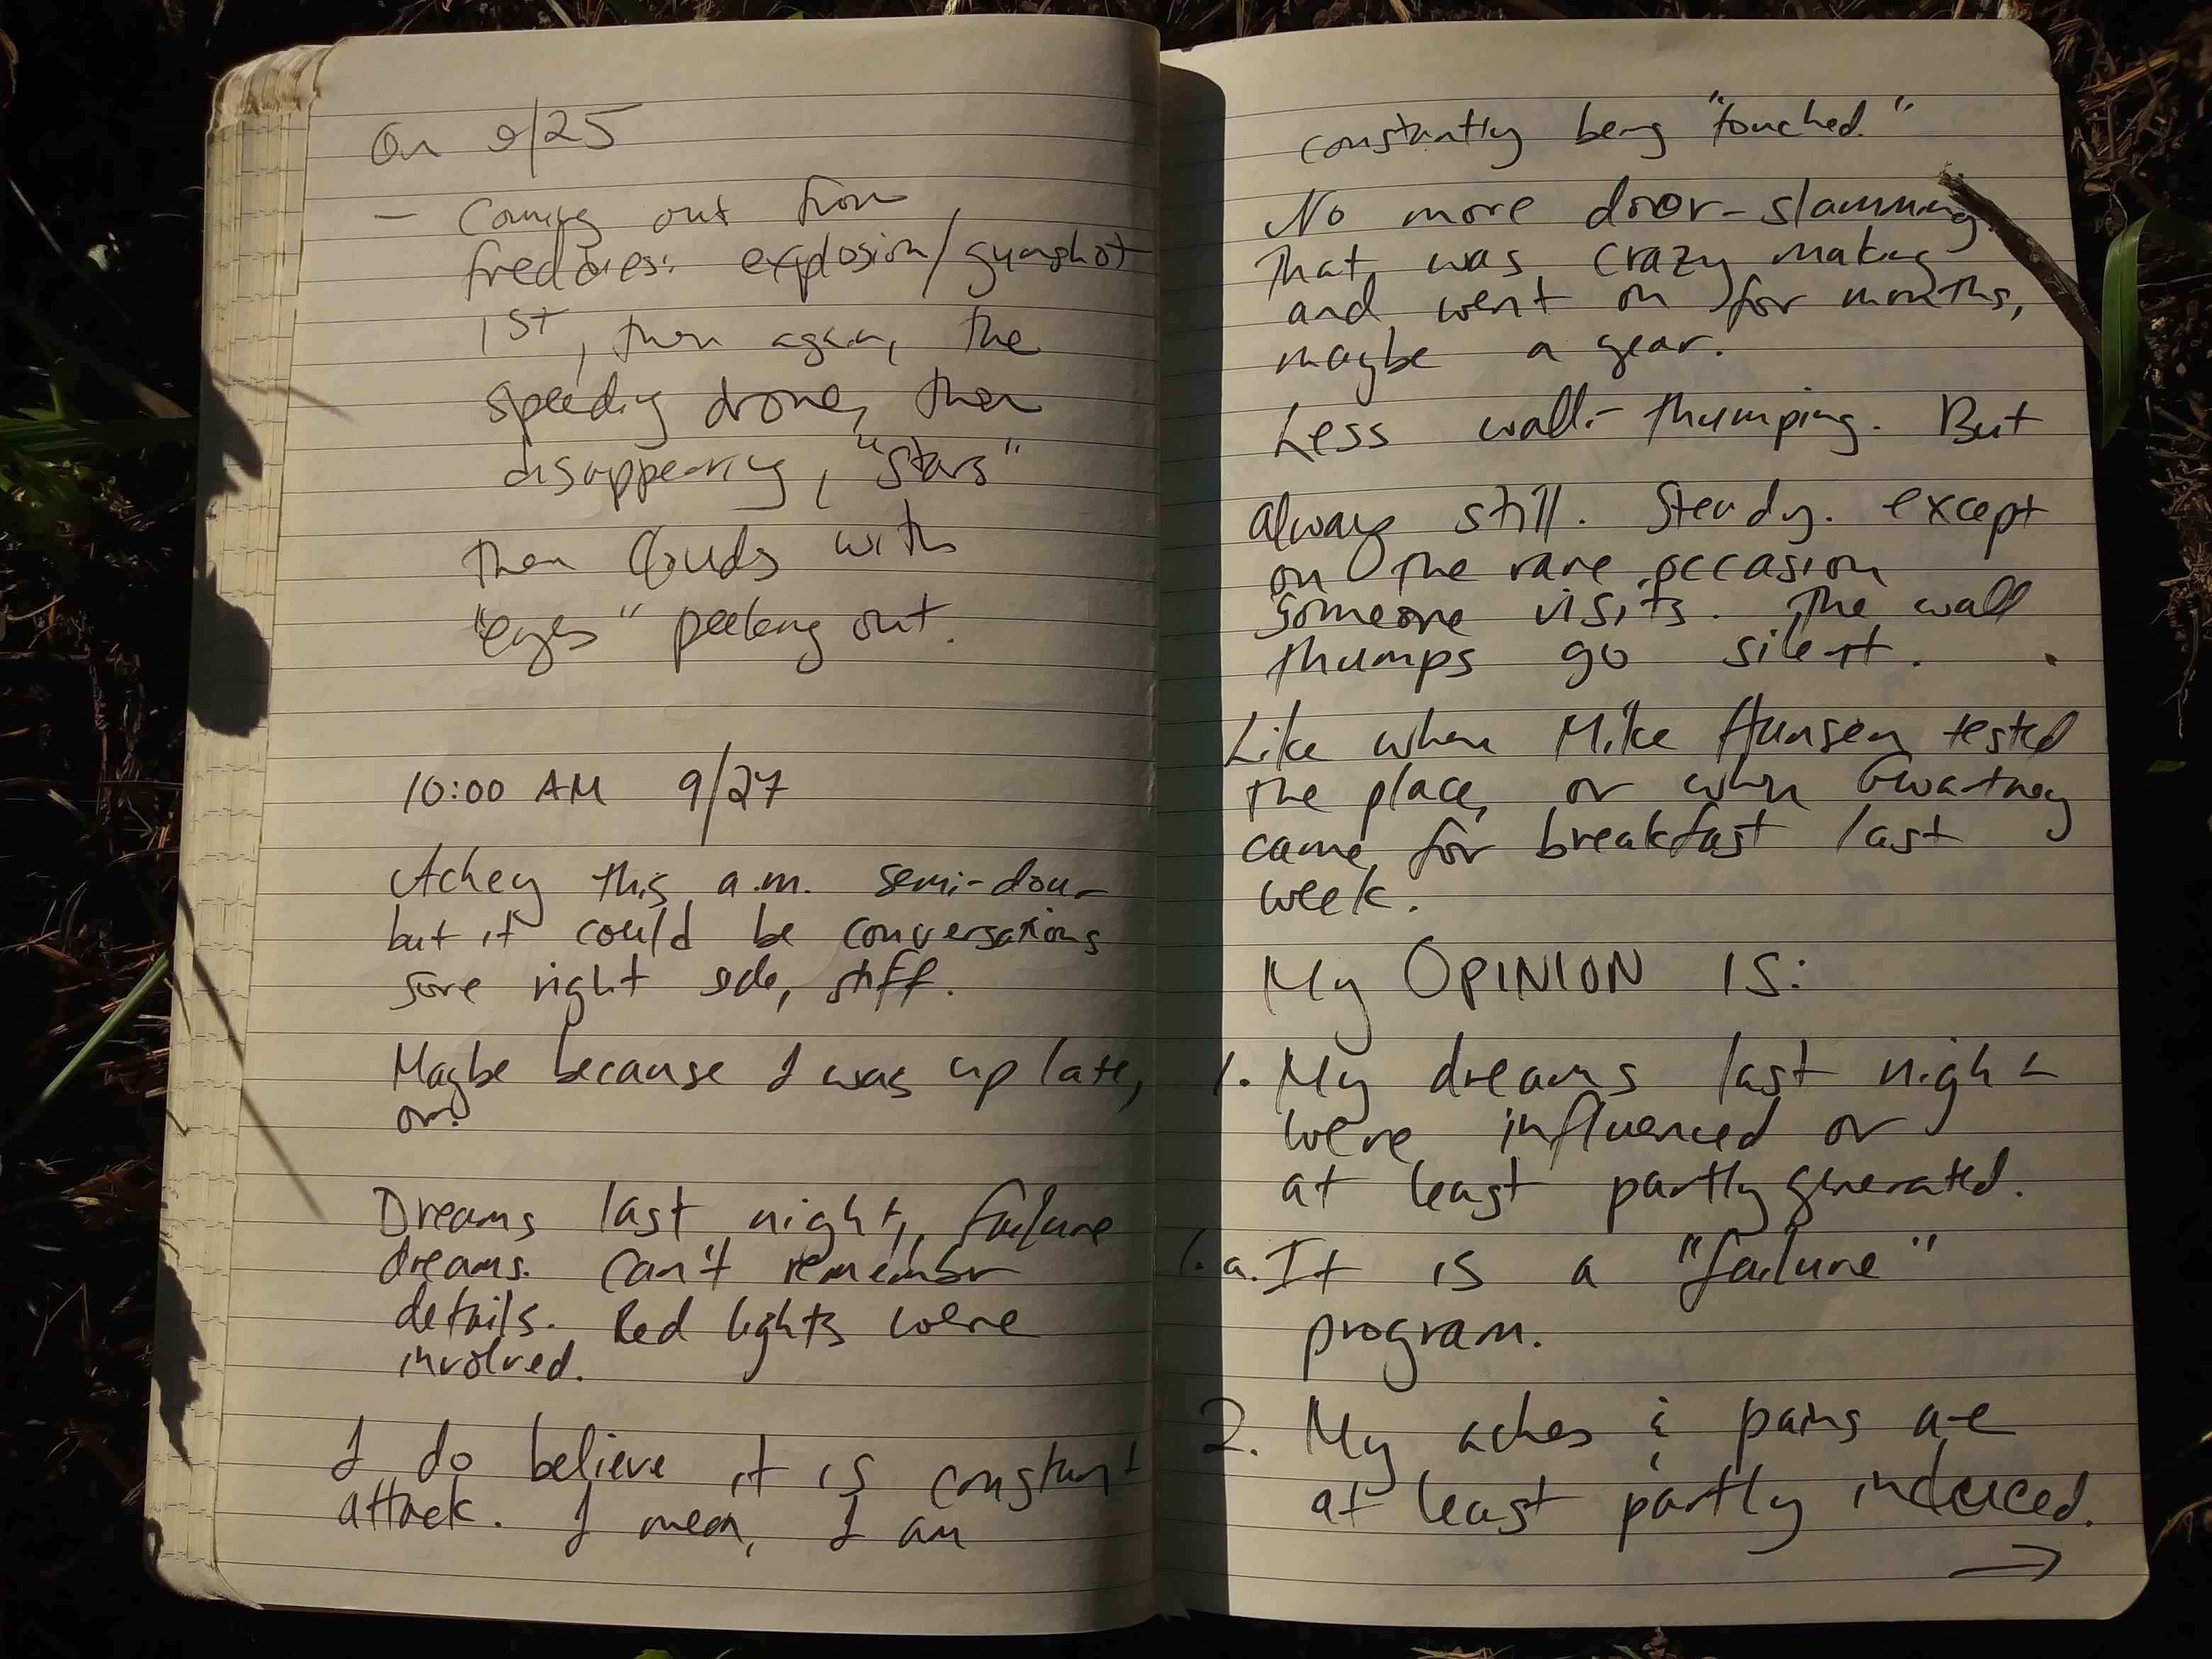 On 9/25
— Coming out from
freddies: explosion/gunshot
1ST, then again, the
speeding drone, then
disappearing, "stars"
then clouds with
"eyes" peeking out.
10:00 AM 9/27
Achey this a.m. semi-dour
but it could be conversations
sore right side, stiff.
Maybe because I was up late,
or?
Dreams last night, failure
dreams. Can't remember
details. Red lights were
involved.
I do believe it is constant
attack. I mean, I am
constantly being "touched."
No more door-slamming.
That was crazy making
and went on for months,
maybe a year.
Less wall-thumping. But
always still. Steady. except
on the rare occasion
someone visits. The wall
thumps go silent.
Like when Mike Hansen tested
the place, or when Gwartney
came for breakfast last
week.
My OPINION IS:
1. My dreams last night
were influenced or
at least partly generated.
1.a. It is a "failure"
program.
2. My aches & pains are
at least partly induced.
→